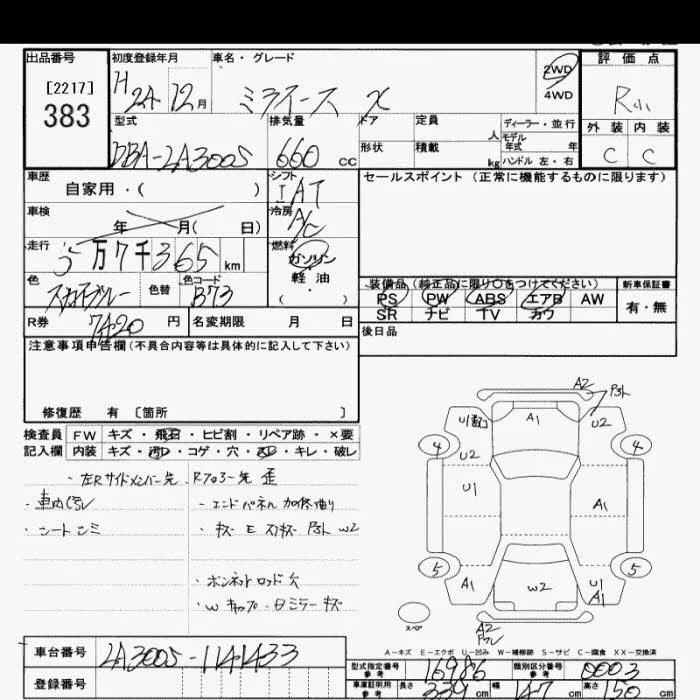 出品番号
[2217]
383
初度登録年月
H 24 12月
車名・グレード
ミライース X
2WD
4WD
評価点
R小
外装 内装
C C
型式
DBA-LA300S
排気量
660 CC
ドア
形状
定員
人
積載
kg
ディーラー・並行
モデル
年式 年
ハンドル 左・右
車歴
自家用・( )
シフト
IAT
セールスポイント(正常に機能するものに限ります)
車検
年 月( 日)
冷房
A/C
走行
5万7千365 km
燃料
ガソリン
軽油
( ・ )
色
スカイブルー
色替
色コード
B73
装備品(純正品に限り○をつけてください)
PS PW ABS エアB AW
SR ナビ TV カワ
新車保証書
有・無
R券 7420 円
名変期限 月 日
後日品
注意事項申告欄(不具合内容等は具体的に記入して下さい)
修復歴 有 〔箇所 〕
検査員 FW キズ・飛石・ヒビ割・リペア跡・×要
記入欄 内装 キズ・汚レ・コゲ・穴・スレ・キレ・破レ
・左Rサイドメンバー先
・車内汚レ
・シートシミ
・エンドパネル加修有り
・キズ E スリキズ W2
・ボンネットロッド欠
・ミラーキズ
A2
U1
A1
U2
4
4
U1
A1
5
5
A1
W2
U1
A1
スペア
A2
A-キズ E-エクボ U-凹み W-補修跡 S-サビ C-腐食 XX-交換済
車台番号 LA300S-1141433
登録番号
型式指定番号 参考 16986
類別区分番号 参考 0003
車庫証明用 参考
長さ 339 cm
幅 147 cm
高さ 150 cm